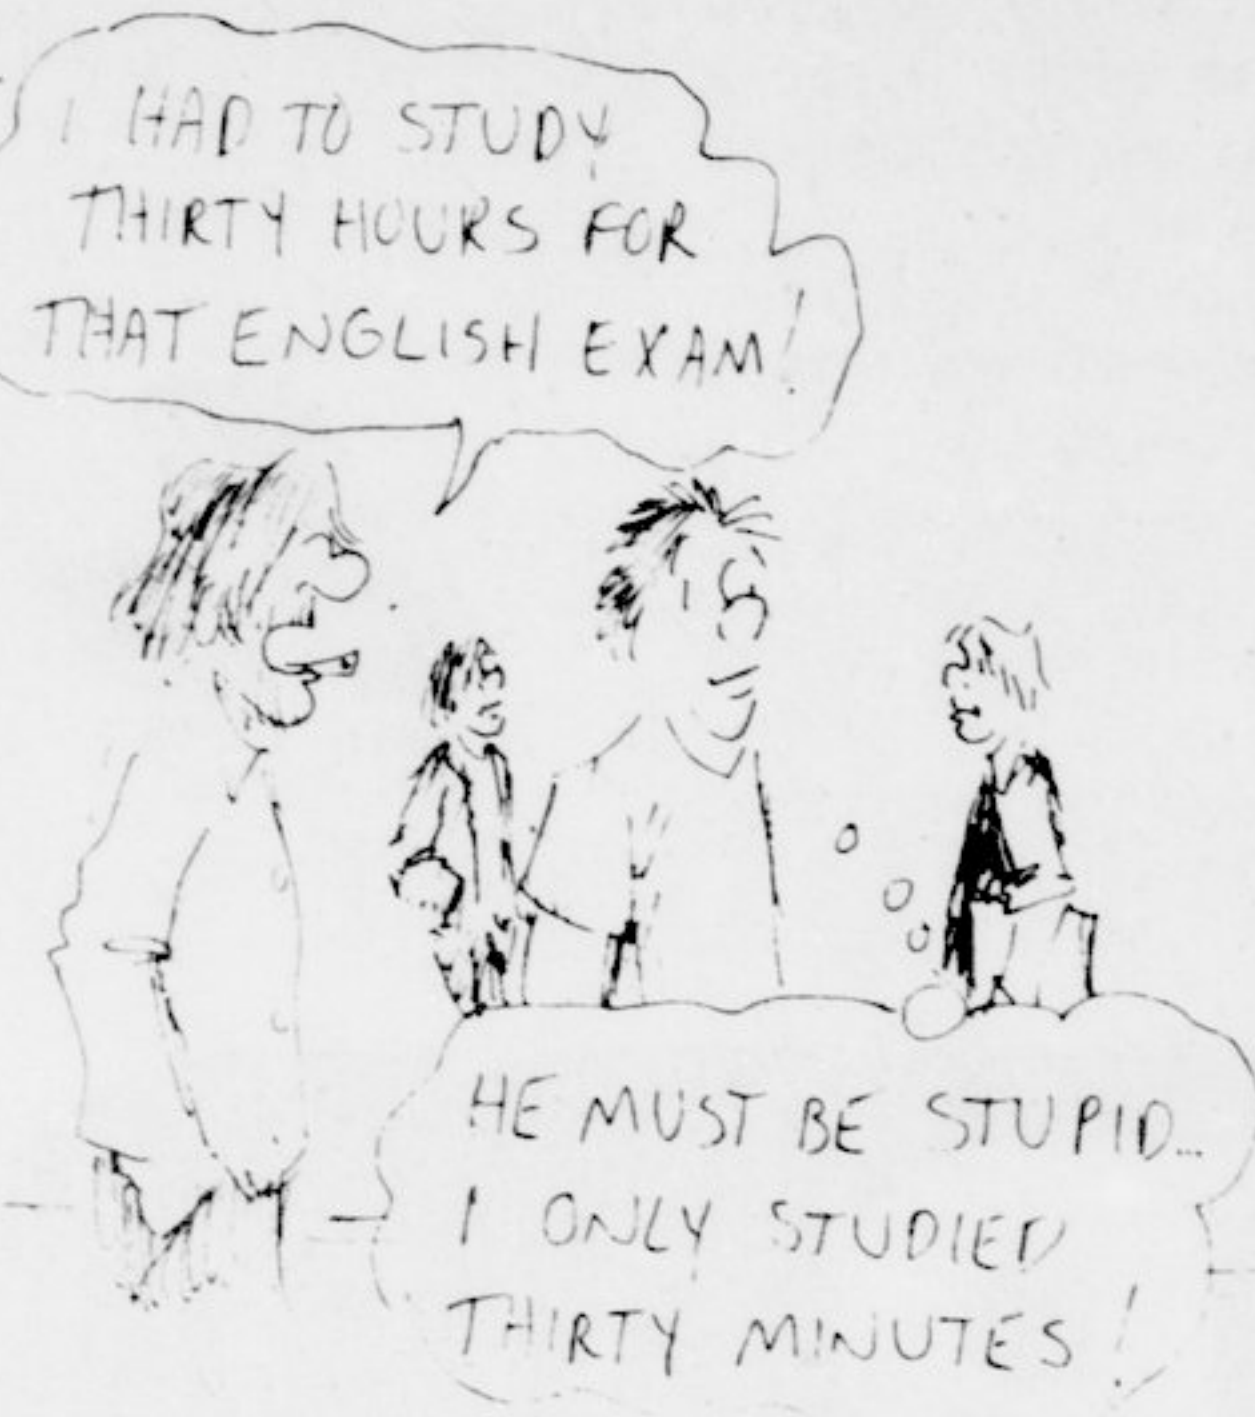 I HAD TO STUDY
THIRTY HOURS FOR
THAT ENGLISH EXAM!
HE MUST BE STUPID...
I ONLY STUDIED
THIRTY MINUTES!